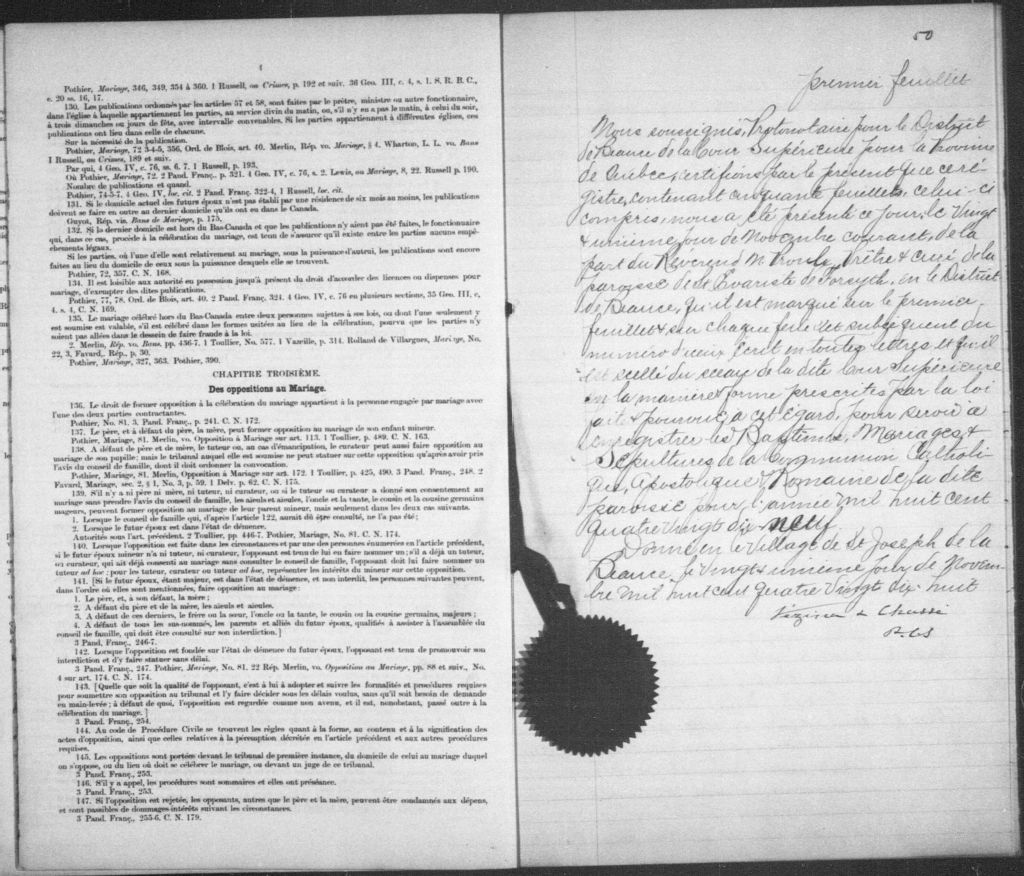 4
Pothier, Mariage, 346, 349, 354 à 360. 1 Russell, on Crimes, p. 192 et suiv. 36 Geo. III, c. 4, s. 1. S. R. B. C.,
c. 20 ss. 16, 17.
130. Les publications ordonnés par les articles 57 et 58, sont faites par le prêtre, ministre ou autre fonctionnaire,
dans l'église à laquelle appartiennent les parties, au service divin du matin, ou, s'il n'y en a pas le matin, à celui du soir,
à trois dimanches ou jours de fête, avec intervalle convenables. Si les parties appartiennent à différentes églises, ces
publications ont lieu dans celle de chacune.
Sur la nécessité de la publication.
Pothier, Mariage, 72 3-4-5, 356, Ord. de Blois, art. 40. Merlin, Rép. vo. Mariage, § 4. Wharton, L. L. vo. Bans
1 Russell, on Crimes, 189 et suiv.
Par qui, 4 Geo. IV, c. 76, ss. 6. 7. 1 Russell, p. 193.
Où Pothier, Mariage, 72. 2 Pand. Franç., p. 321. 4 Geo. IV, c. 76, s. 2. Lewis, on Mariage, 8, 22. Russell p. 190.
Nombre de publications et quand.
Pothier, 74-5-7. 4 Geo. IV, loc. cit. 2 Pand. Franç. 322-4, 1 Russell, loc. cit.
131. Si le domicile actuel des futurs époux n'est pas établi par une résidence de six mois au moins, les publications
doivent se faire en outre au dernier domicile qu'ils ont eu dans le Canada.
Guyot, Rép. vis. Bans de Mariage, p. 175.
132. Si la dernière domicile est hors du Bas-Canada et que les publications n'y aient pas été faites, le fonctionnaire
qui, dans ce cas, procède à la célébration du mariage, est tenu de s'assurer qu'il existe entre les parties aucuns empê-
chements légaux.
Si les parties, où l'une d'elle sont relativement au mariage, sous la puissance d'autrui, les publications sont encore
faites au lieu du domicile de ceux sous la puissance desquels elle se trouvent.
Pothier, 72, 357, C. N. 168.
134. Il est loisible aux autorité en possession jusqu'à présent du droit d'accorder des licences ou dispenses pour
mariage, d'exempter des dites publications.
Pothier, 77, 78. Ord. de Blois, art. 40. 2 Pand. Franç. 324. 4 Geo. IV, c. 76 en plusieurs sections, 35 Geo. III, c,
4. s. 4, C. N. 169.
135. Le mariage célébré hors du Bas-Canada entre deux personnes sujettes à ses lois, ou dont l'une seulement y
est soumise est valable, s'il est célébré dans les formes usitées au lieu de la célébration, pourvu que les parties n'y
soient pas allées dans le dessein de faire fraude à la loi.
2. Merlin, Rép. vo. Bans. pp. 436-7. 1 Toullier, No. 577. 1 Vazeille, p. 314. Rolland de Villargues, Mariage, No.
22, 3, Favard., Rép., p. 50.
Pothier, Mariage, 327, 363. Pothier, 390.
CHAPITRE TROISIÈME.
Des oppositions au Mariage.
136. Le droit de former opposition à la célébration du mariage appartient à la personne engagée par mariage avec
l'une des deux parties contractantes.
Pothier, No. 81. 3. Pand. Franç., p. 241. C. N. 172.
137. Le père, et à défaut du père, la mère, peut former opposition au mariage de son enfant mineur.
Pothier, Mariage, 81. Merlin, vo. Opposition à Mariage sur art. 113. 1 Toullier, p. 489. C. N. 163.
138. A défaut de père et de mère, le tuteur ou, au cas d'émancipation, le curateur peut aussi faire opposition au
mariage de son pupille; mais le tribunal auquel elle est soumise ne peut statuer sur cette opposition qu'après avoir pris
l'avis du conseil de famille, dont il doit ordonner la convocation.
Pothier, Mariage, 81. Merlin, Opposition à Mariage sur art. 172. 1 Toullier, p. 425, 490. 3 Pand. Franç., 248. 2
Favard, Mariage, sec. 2, § 1, No. 3, p. 59. 1 Delv. p. 62. C. N. 175.
139. S'il n'y a ni père ni mère, ni tuteur, ni curateur, ou si le tuteur ou curateur a donné son consentement au
mariage sans prendre l'avis du conseil de famille, les aïeuls et aïeules, l'oncle et la tante, le cousin et la cousine germains
majeurs, peuvent former opposition au mariage de leur parent mineur, mais seulement dans les deux cas suivants.
1. Lorsque le conseil de famille qui, d'après l'article 122, aurait dû être consulté, ne l'a pas été;
2. Lorsque le futur époux est dans l'état de démence.
Autorités sous l'art. précédent. 2 Toullier, pp. 446-7. Pothier, Mariage, No. 81. C. N. 174.
140. Lorsque l'opposition est faite dans les circonstances et par une des personnes énumérées en l'article précédent,
si le futur époux mineur n'a ni tuteur, ni curateur, l'opposant est tenu de lui en faire nommer un; s'il a déjà un tuteur,
ou curateur, qui ait déjà consenti au mariage sans consulter le conseil de famille, l'opposant doit lui faire nommer un
tuteur ad hoc; pour les tuteur, curateur ou tuteur ad hoc, représenter les intérêts du mineur sur cette opposition.
141. [Si le futur époux, étant majeur, est dans l'état de démence, et non interdit, les personnes suivantes peuvent,
dans l'ordre où elles sont mentionnées, faire opposition au mariage:
1. Le père, et, à son défaut, la mère;
2. A défaut du père et de la mère, les aïeuls et aïeules.
3. A défaut de ces derniers, le frère ou la sœur, l'oncle ou la tante, le cousin ou la cousine germains, majeurs;
4. A défaut de tous les sus-nommés, les parents et alliés du futur époux, qualifiés à assister à l'assemblée du
conseil de famille, qui doit être consulté sur son interdiction.]
3 Pand. Franç., 246-7.
142. Lorsque l'opposition est fondée sur l'état de démence du futur époux, l'opposant est tenu de promouvoir son
interdiction et d'y faire statuer sans délai.
3 Pand. Franç., 247. Pothier, Mariage, No. 81. 22 Rép. Merlin, vo. Opposition au Mariage, pp. 88 et suiv., No.
4 sur art. 174. C. N. 174.
143. [Quelle que soit la qualité de l'opposant, c'est à lui à adopter et suivre les formalités et procédures requises
pour soumettre son opposition au tribunal et l'y faire décider sous les délais voulus, sans qu'il soit besoin de demande
en main-levée; à défaut de quoi, l'opposition est regardée comme non avenu, et il est, nonobstant, passé outre à la
célébration du mariage.]
3 Pand. Franç., 254.
144. Au code de Procédure Civile se trouvent les règles quant à la forme, au contenu et à la signification des
actes d'opposition, ainsi que celles relatives à la péremption décrétée en l'article précédent et aux autres procédures
requises.
145. Les oppositions sont portées devant le tribunal de première instance, du domicile de celui au mariage duquel
on s'oppose, ou du lieu où doit se célébrer le mariage, ou devant un juge de ce tribunal.
3 Pand. Franç., 253.
146. S'il y a appel, les procédures sont sommaires et elles ont préséance.
3 Pand. Franç., 253.
147. Si l'opposition est rejetée, les opposants, autres que le père et la mère, peuvent être condamnés aux dépens,
et sont passibles de dommages-intérêts suivant les circonstances.
3 Pand. Franç., 255-6, C. N. 179.
50
premier feuillet
Nous soussignés, Protonotaire pour le District
de Beauce de la Cour Supérieure pour la Province
de Québec, certifions par le présent que ce ré-
gistre, contenant cinquante feuillets, celui-ci
compris, nous a été présenté ce jour, le Vingt
& unième jour de Novembre courant, de la
part du Révérend M. Prêtre & curé de la
paroisse de St Evariste de Forsyth, en le District
de Beauce, qu'il est marqué sur le premier
feuillet & sur chaque feuillet subséquent du
numéro d'iceux écrit en toutes lettres et qu'il
est scellé du sceau de la dite Cour Supérieure
en la manière & forme prescrites par la loi
faite & pourvue à cet égard, pour servir à
enregistrer les Baptêmes, Mariages &
Sépultures de la Communion Catholi-
que, Apostolique & Romaine de la dite
paroisse pour l'année mil huit cent
quatre vingt dix neuf
Donné en le Village de St Joseph de la
Beauce, le vingt & unième jour de Novem-
bre mil huit cent quatre vingt dix huit
Vézina & Chassé
P. C. S.